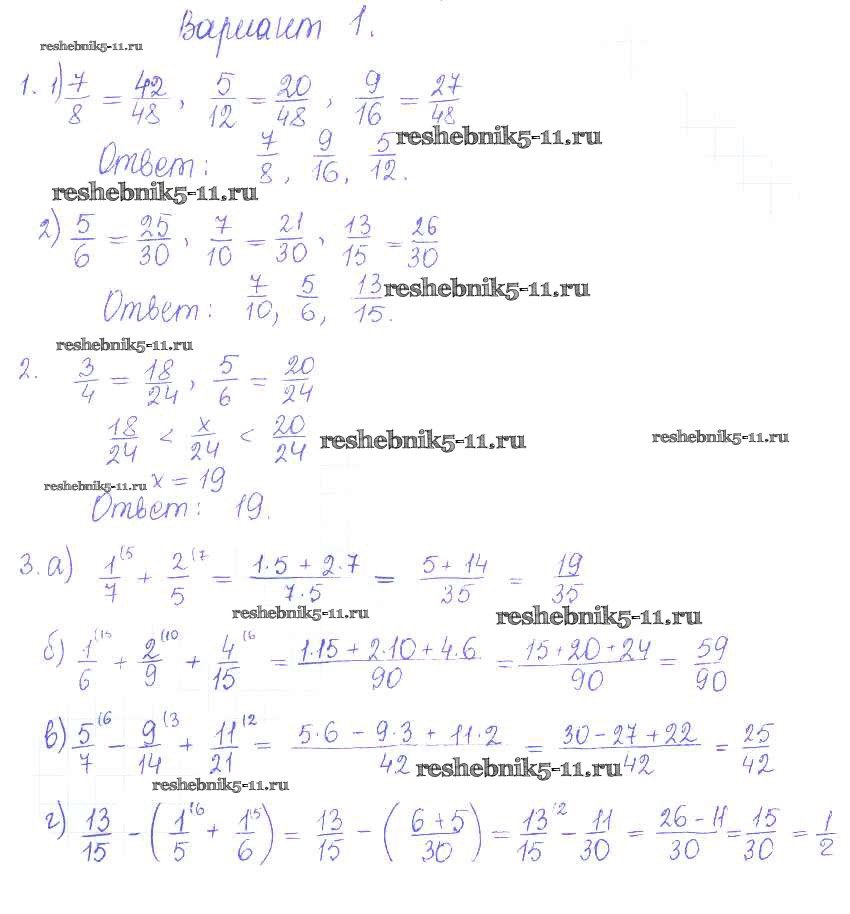 Вариант 1.
reshebnik5-11.ru
1. 1) 7/8 = 42/48, 5/12 = 20/48, 9/16 = 27/48
reshebnik5-11.ru
Ответ: 7/8, 9/16, 5/12.
reshebnik5-11.ru
2) 5/6 = 25/30, 7/10 = 21/30, 13/15 = 26/30
Ответ: 7/10, 5/6, 13/15.
reshebnik5-11.ru
reshebnik5-11.ru
2. 3/4 = 18/24, 5/6 = 20/24
18/24 < x/24 < 20/24
reshebnik5-11.ru
reshebnik5-11.ru
reshebnik5-11.ru
x = 19
Ответ: 19.
3. а) 1/7 (5 + 2/5 (7 = 1·5 + 2·7/7·5 = 5 + 14/35 = 19/35
reshebnik5-11.ru
reshebnik5-11.ru
б) 1/6 (15 + 2/9 (10 + 4/15 (6 = 1·15 + 2·10 + 4·6/90 = 15 + 20 + 24/90 = 59/90
в) 5/7 (6 - 9/14 (3 + 11/21 (2 = 5·6 - 9·3 + 11·2/42 = 30 - 27 + 22/42 = 25/42
reshebnik5-11.ru
reshebnik5-11.ru
г) 13/15 - (1/5 (6 + 1/6 (5) = 13/15 - (6 + 5/30) = 13/15 (2 - 11/30 = 26 - 11/30 = 15/30 = 1/2